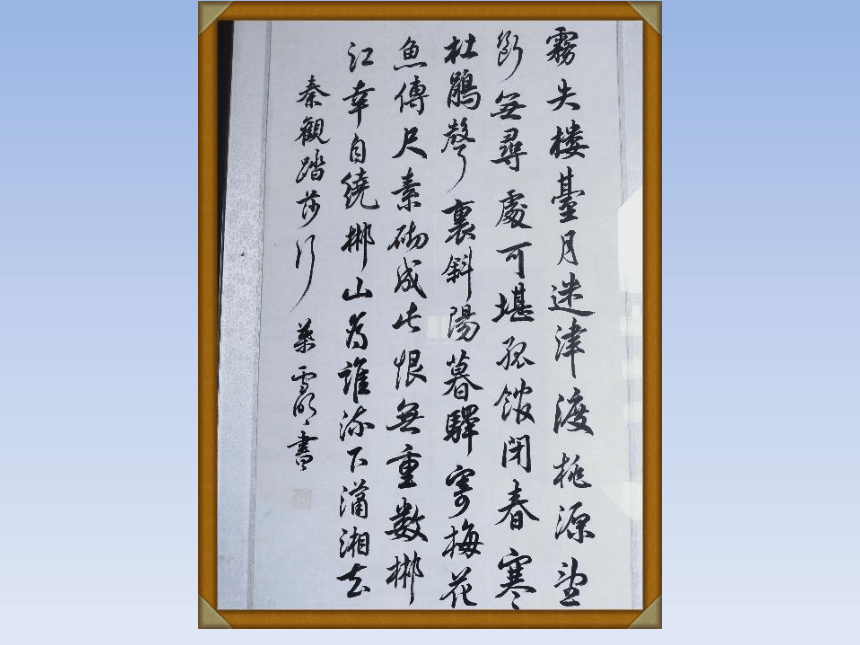 霧失楼臺月迷津渡桃源望
斷無尋處可堪孤館閉春寒
杜鵑聲裏斜陽暮驛寄梅花
魚傳尺素砌成此恨無重數郴
江幸自繞郴山為誰流下瀟湘去
秦觀踏莎行 葉書